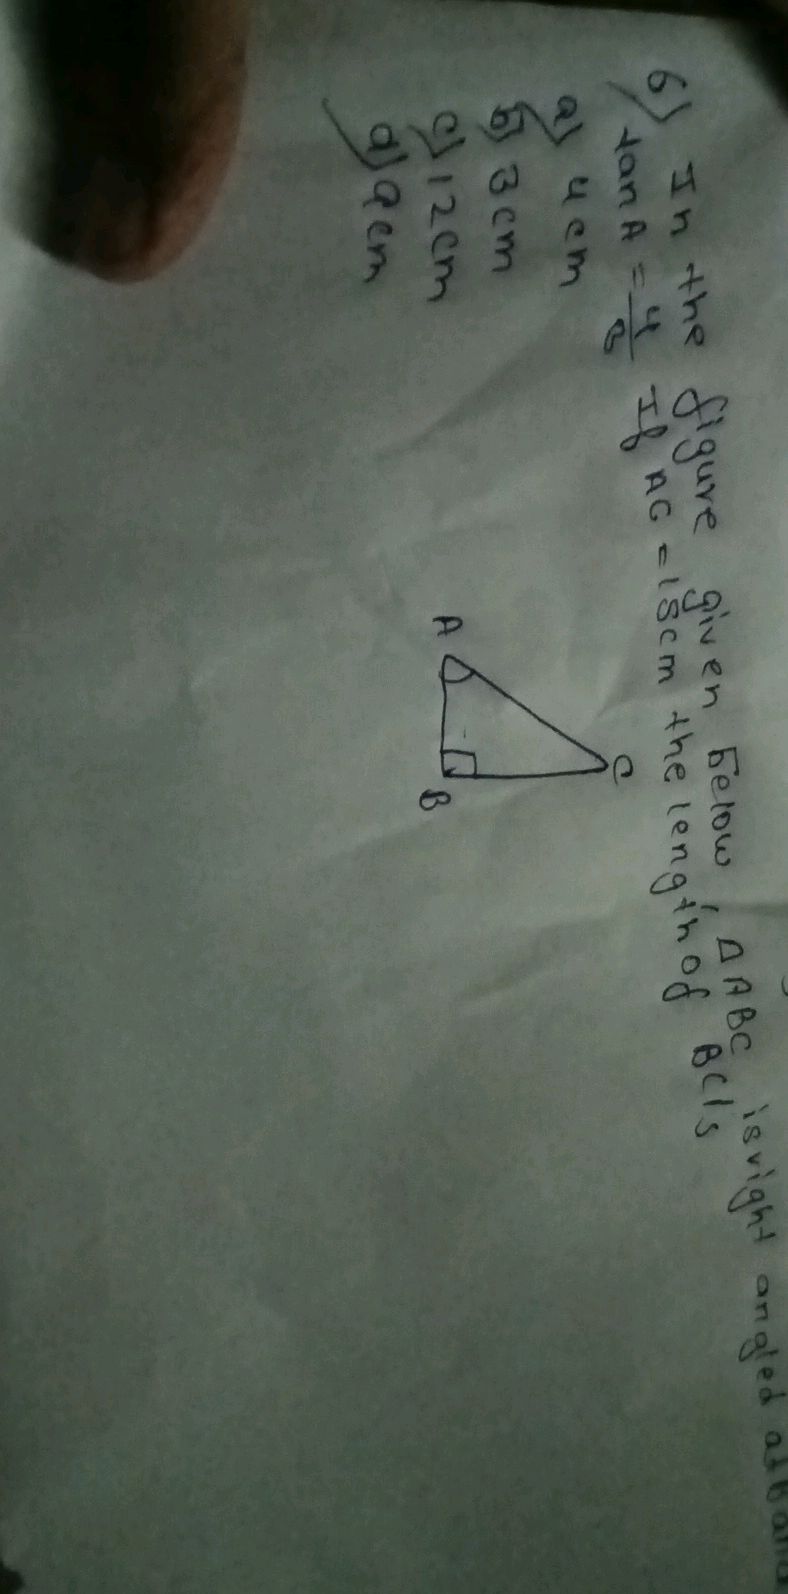 6) In the figure given below, ΔABC is right angled at B and
tan A = 4/3 If AC = 15cm the length of BC is
a) 4cm
b) 3cm
c) 12cm
d) 9cm
C
A
B